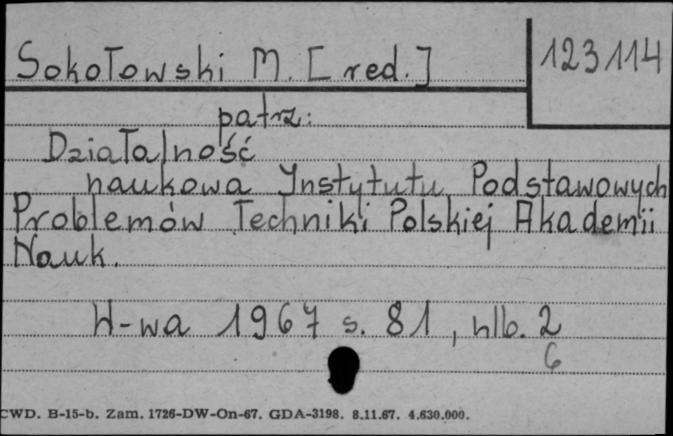 Sokołowski M. [red.]
123114
patrz:
Działalność
naukowa Instytutu Podstawowych
Problemów Techniki Polskiej Akademii
Nauk.
W-wa 1967 s. 81, nlb. 2
6
CWD. B-15-b. Zam. 1726-DW-On-67. GDA-3198. 8.11.67. 4.630.000.